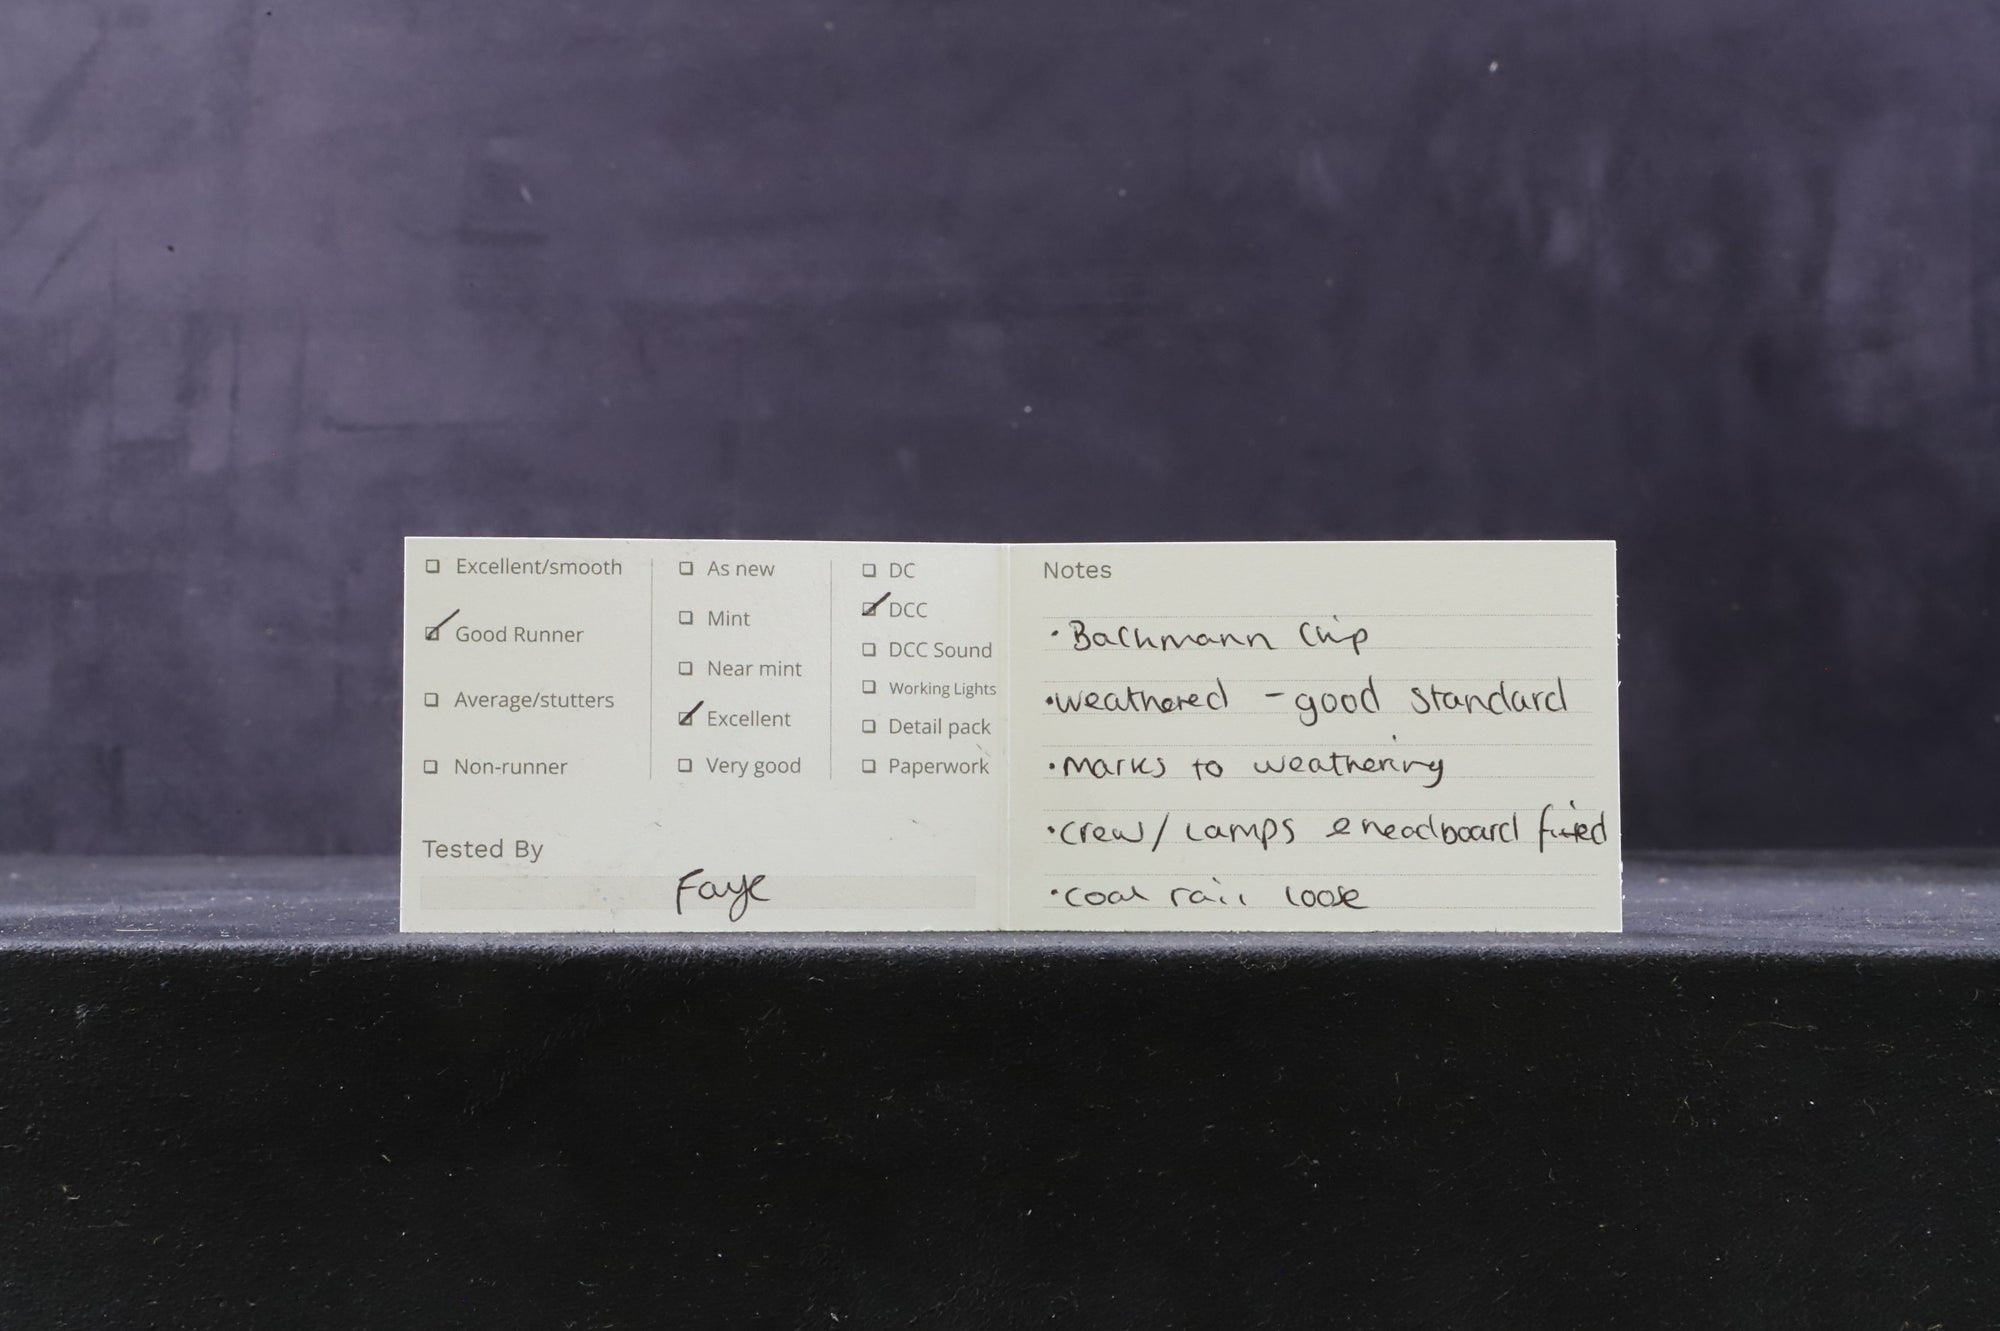 Excellent/smooth
Good Runner
Average/stutters
Non-runner
As new
Mint
Near mint
Excellent
Very good
DC
DCC
DCC Sound
Working Lights
Detail pack
Paperwork
Tested By
Faye
Notes
• Bachmann Chip
• weathered - good standard
• Marks to weathering
• crew/ lamps & headboard fitted
• coal rail loose